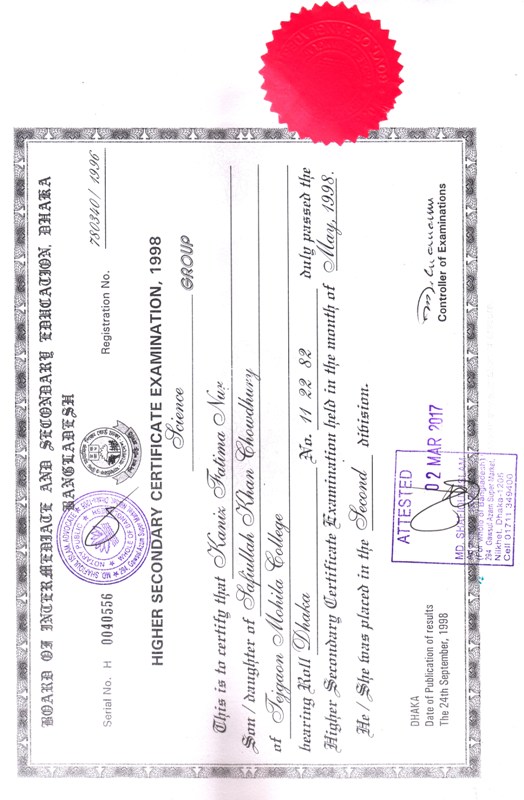 BOARD OF INTERMEDIATE AND SECONDARY EDUCATION, DHAKA
BANGLADESH
Serial No. H 0040556
Registration No. 780310 / 1996
HIGHER SECONDARY CERTIFICATE EXAMINATION, 1998
Science GROUP
This is to certify that Kaniz Fatima Nur
Son / daughter of Safiullah Khan Chowdhury
of Tejgaon Mohila College
bearing Roll Dhaka No. 11 22 82 duly passed the
Higher Secondary Certificate Examination held in the month of May, 1998.
He / She was placed in the Second division.
DHAKA
Date of Publication of results
The 24th September, 1998
ATTESTED
02 MAR 2017
MD.
294, Gausul Azam Super Market,
Nilkhet, Dhaka-1205
Cell 01711 349400
Controller of Examinations